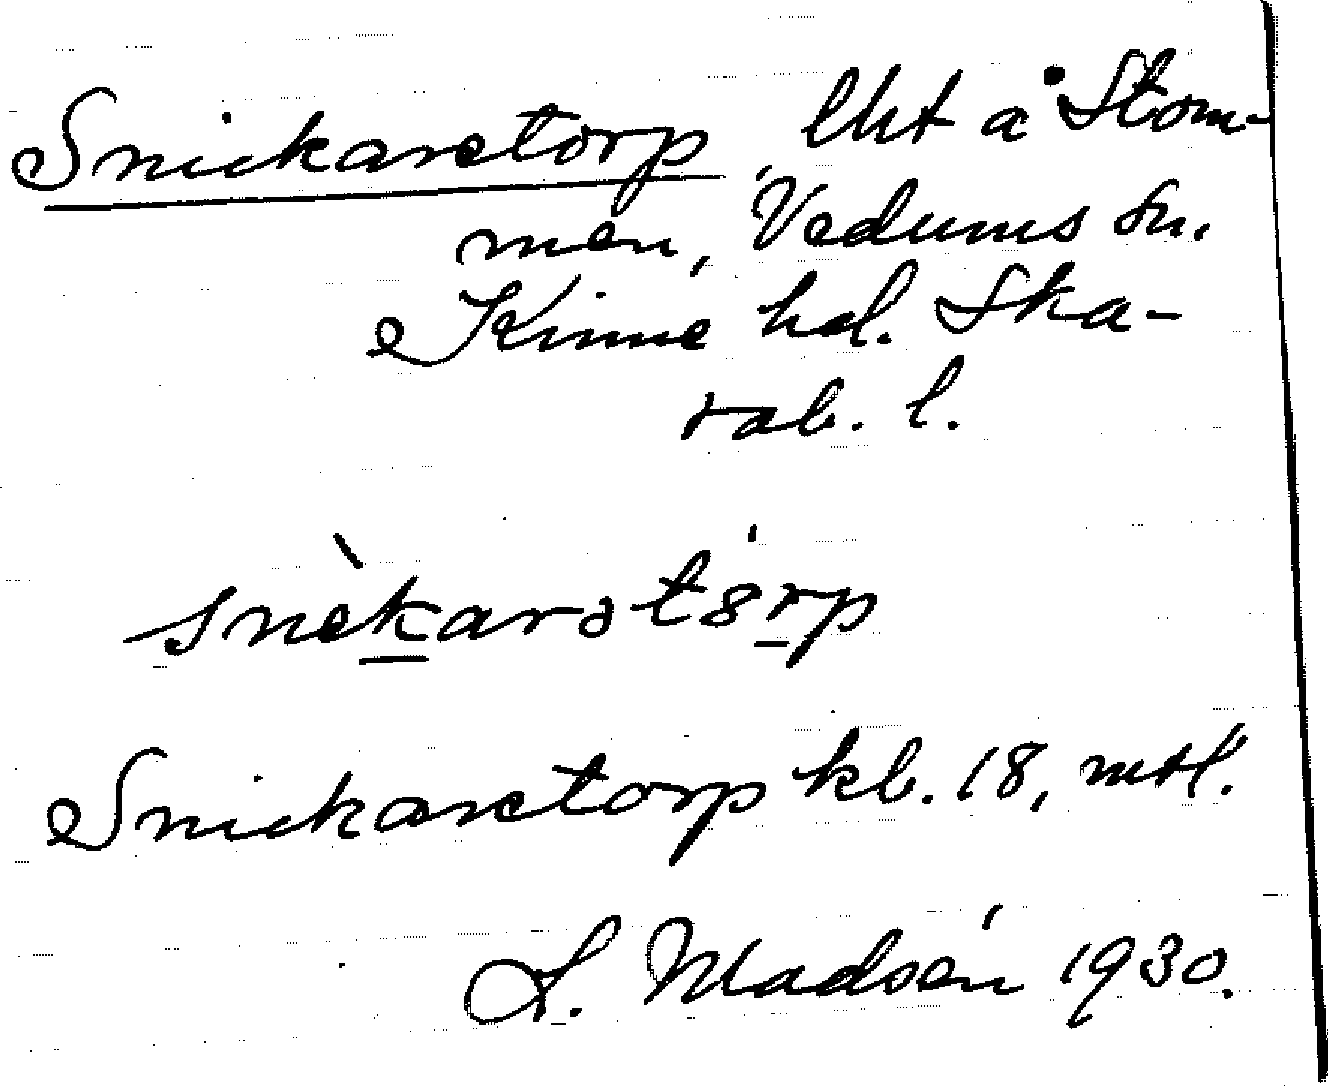 Snickaretorp, lht å Stom-
men, Vedums sn.
Kinne hd. Ska-
rab. l.
snèkarətórp
Snickaretorp kb. 18, mtl.
L. Madsén 1930.